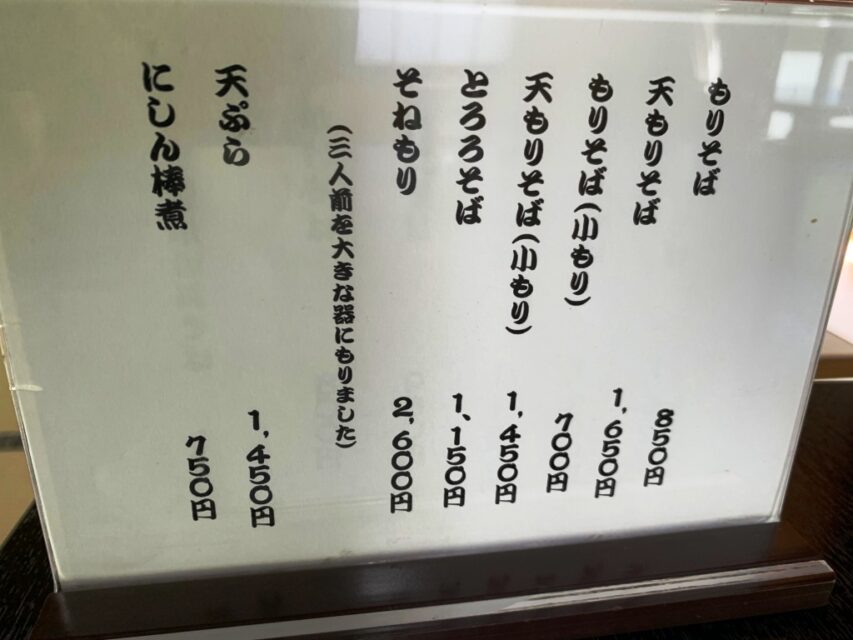 もりそば 850円
天もりそば 1,650円
もりそば(小もり) 700円
天もりそば(小もり) 1,450円
とろろそば 1,150円
そねもり 2,600円
(三人前を大きな器にもりました)
天ぷら 1,450円
にしん棒煮 750円